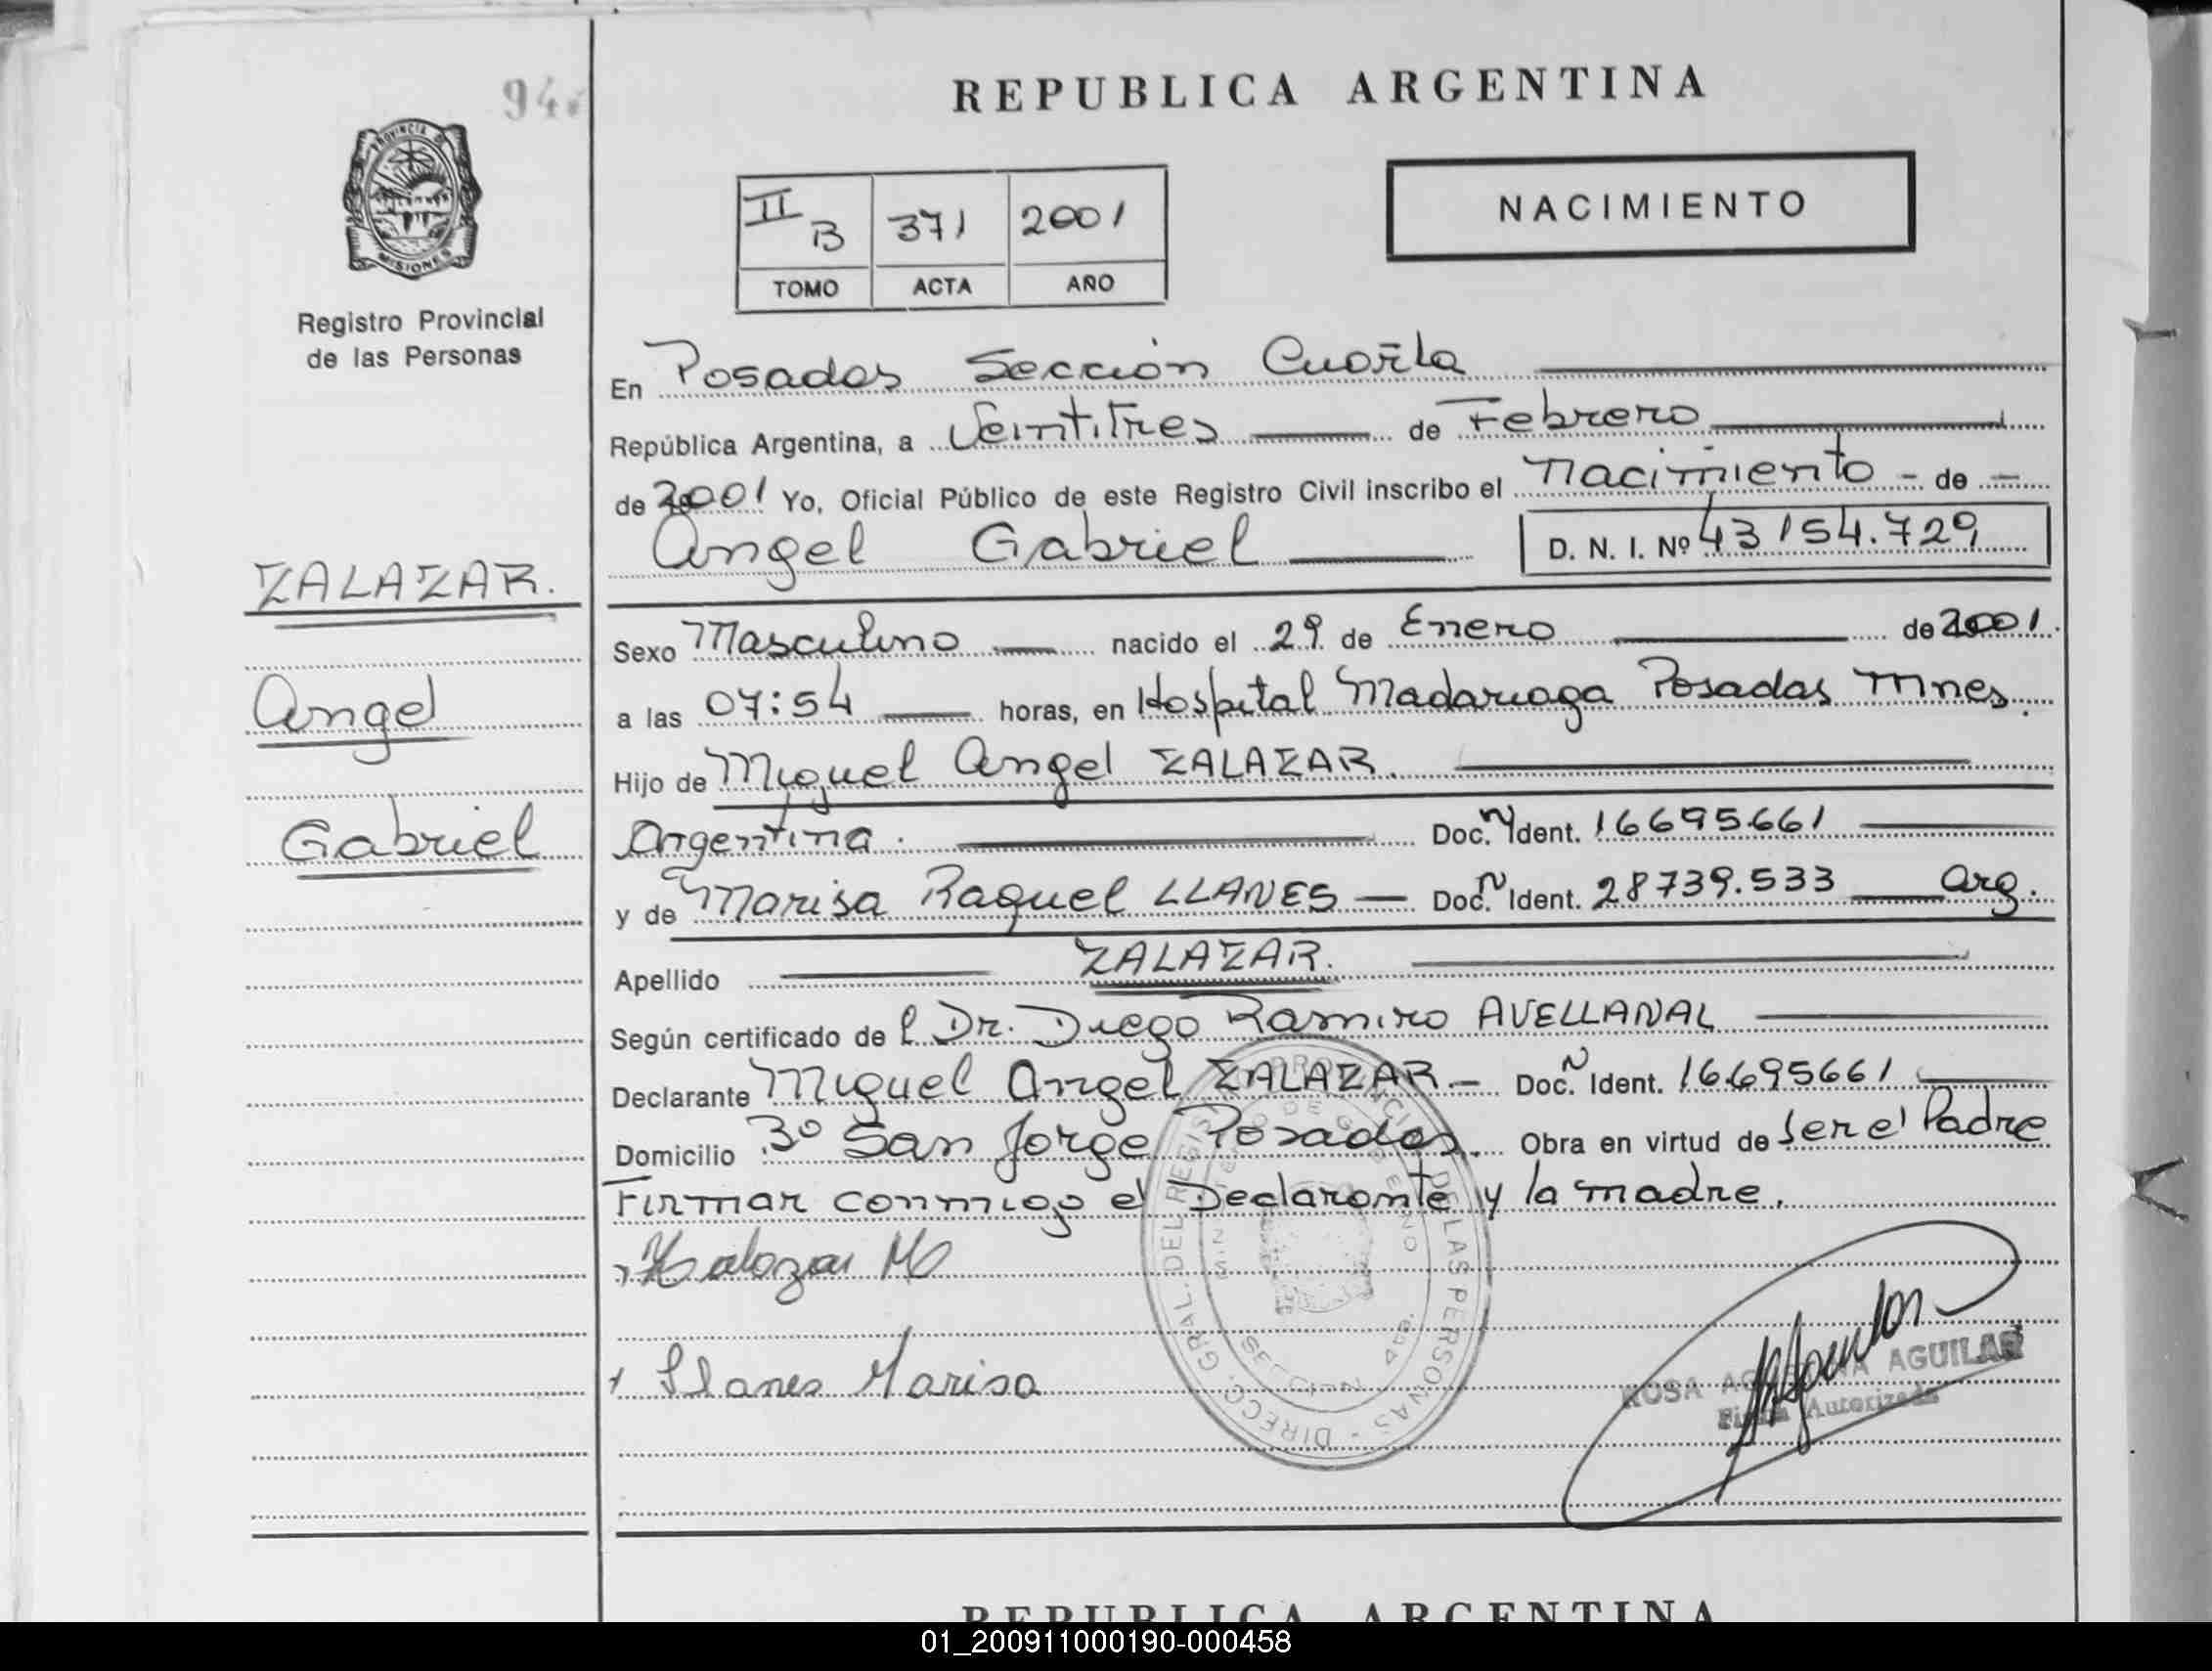 94
REPUBLICA ARGENTINA
PROVINCIA DE
MISIONES
Registro Provincial
de las Personas
II B 371 2001
TOMO ACTA AÑO
NACIMIENTO
En Posadas Sección Cuarta
República Argentina, a Veintitres de Febrero
de 2001 Yo, Oficial Público de este Registro Civil inscribo el nacimiento - de -
Angel Gabriel D. N. I. Nº 43154.729
ZALAZAR.
Angel
Gabriel
Sexo Masculino nacido el 29 de Enero de 2001.
a las 07:54 horas, en Hospital Madariaga Posadas Mnes.
Hijo de Miguel Angel ZALAZAR.
Argentina. Doc. Ident. 16695661
y de Marisa Raquel LLANES — Doc. Ident. 28739.533 Arg.
Apellido ZALAZAR.
Según certificado de l Dr. Diego Ramiro AVELLANAL
Declarante Miguel Angel ZALAZAR.- Doc. Ident. 16.695661
Domicilio Bº San Jorge Posadas. Obra en virtud de ser el Padre
Firmar conmigo el Declarante y la madre.
Zalazar M
Llanes Marisa
DIRECC. GRAL. DEL REGISTRO PROVINCIAL DE LAS PERSONAS
SECCION 4ta.
ROSA AGUILAR
Firma Autorizada
REPUBLICA ARGENTINA
01_200911000190-000458